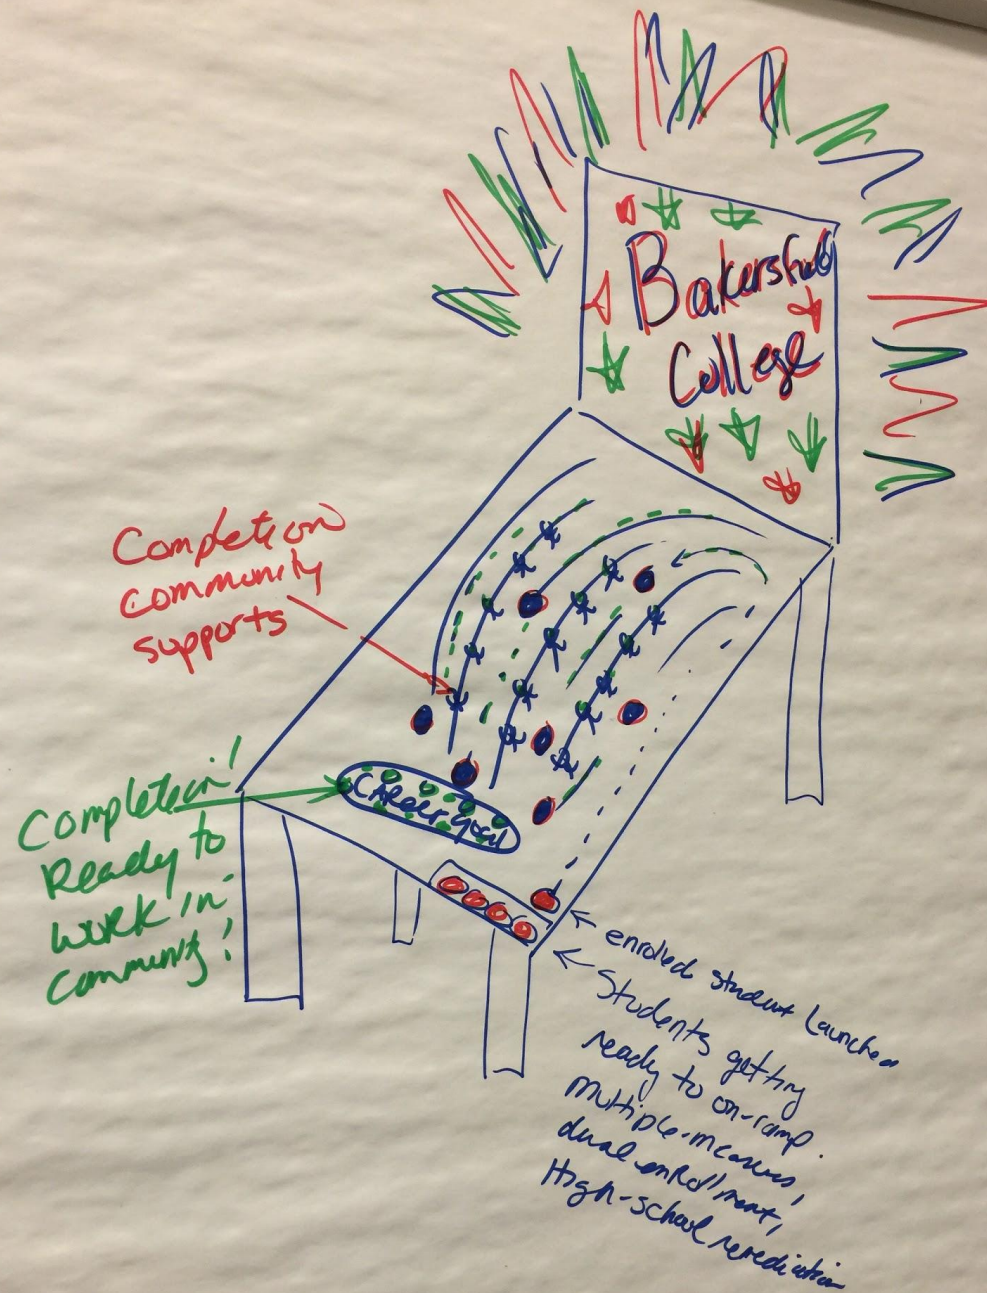 Bakersfield
College
Completion
community
supports
Completion!
Ready to
work in
community!
Career goal
enrolled student launches
Students getting
ready to on-ramp.
multiple-measures,
dual enrollment,
High-school remediation